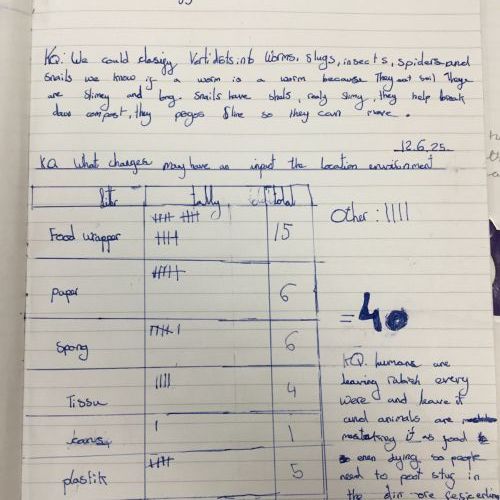 KQ: We could clasify Vertidists inb Worms, slugs, insects, spiders and
snails we know if a worm is a worm because They eat soil These
are slimey and long. Snails have shels, realy slimy, they help break
down compost, they slime so they can move.
12.6.25
KQ What changes may have an input the location enviroment
litr tally total
Food wrapper 15
Other: ||||
paper 6
= 40
Spong 6
Tissu |||| 4
| 1
plastik 5
KQ. humans are
leaving rabish every
were and leave it
and animals are
it as food
even dying, so people
need to poot stuf in
the